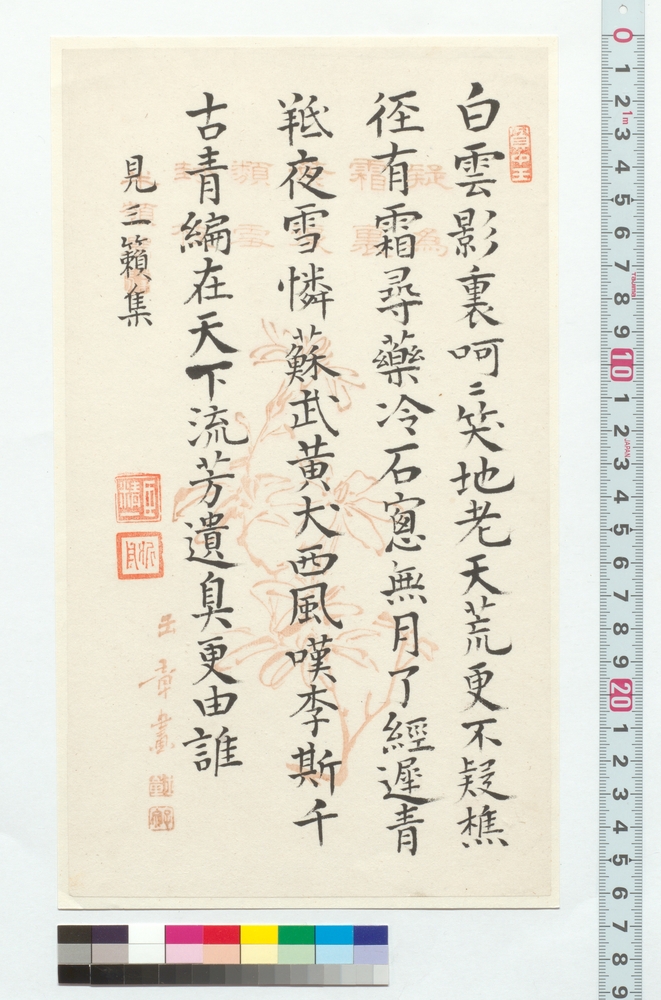 白雲影裏呵〻笑地老天荒更不疑樵
徑有霜尋藥冷石窻無月了經遲青
羝夜雪憐蘇武黃犬西風嘆李斯千
古青編在天下流芳遺臭更由誰
見三籟集